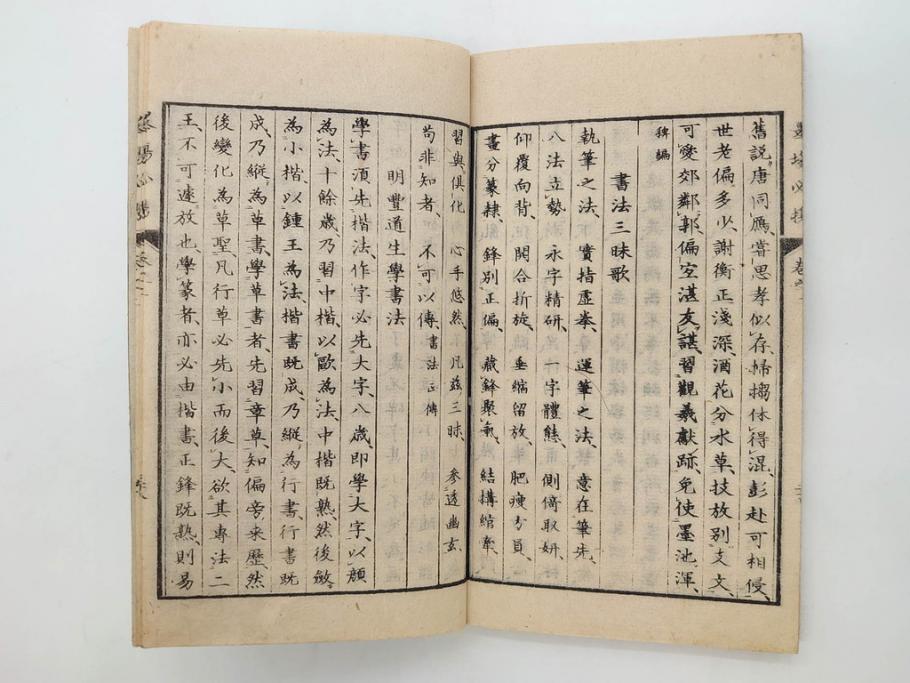 舊説、唐同雁、嘗思孝似、存婦搊休得混、彭赴可相侵、
世老偏多少、謝衡正淺深、酒花分水草、技放別支文、
可愛郊鄰郭、偏空湛友諶、習觀羲獻跡、免使墨池渾、
稗編
書法三昧歌
執筆之法、實指虛拳、運筆之法、意在筆先、
八法立勢、永字精研、一字體態、側倚取妍、
仰覆向背、開合折旋、垂縮留放、肥瘦方員、
畫分篆隸、鋒別正偏、藏鋒聚氣、結構綰牽、
習與俱化、心手悠然、不凡茲三昧、參透幽玄、
苟非知者、不可以傳、書法正傳
明豐道生學書法
學書須先楷法、作字必先大字、八歲、即學大字、以顏
為法、十餘歲、乃習中楷、以歐為法、中楷既熟、然後斂
為小楷、以鍾王為法、楷書既成、乃縱為行書、行書既
成、乃縱為草書、學草書者、先習章草、知偏旁來歷、然
後變化為草聖、凡行草必先小而後大、欲其專法二
王、不可遽放也、學篆者、亦必由楷書、正鋒既熟、則易